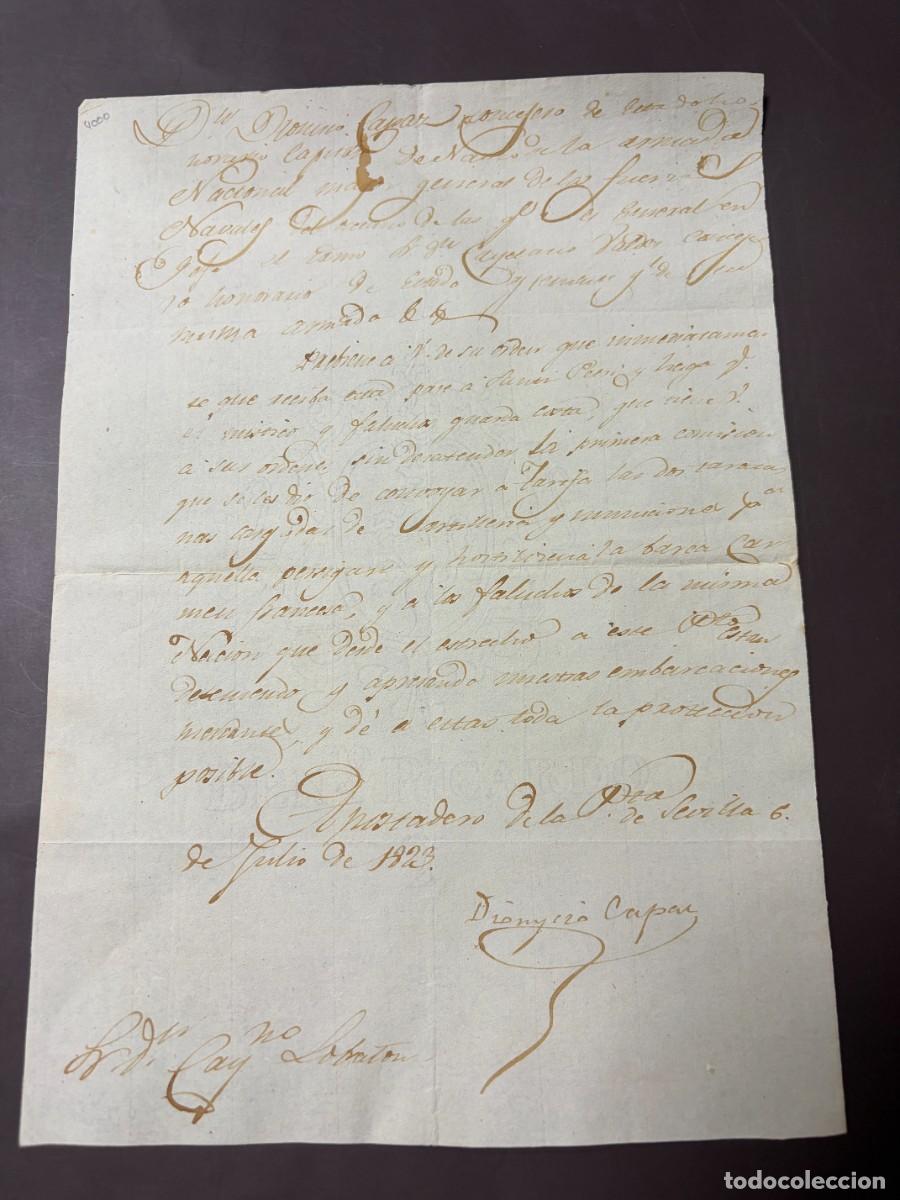 4000
Dn Dionicio Capaz consejero de Estado ho-
norario Capitan de Navio de la armada
Nacional mayor general de las fuerzas
Navales del oceano de las qe es General en
Gefe el Exmo Sr dn Cayetano Valdes conseje
ro honorario de Estado y teniente gl de la
misma armada & &
Previene a V. de su orden que inmediatamen-
te que reciba esta pase a Santi Petri y haga qe
el mistico y faluchos guarda costa, que tiene V.
a sus ordenes sin desatender la primera comision
que se les dio de convoyar a Tarifa las dos
nas cargadas de Artilleria y municiones pa
aquella, persigan y hostilicen a la barca Car
men francesa, y a los faluchos de la misma
Nacion que desde el estrecho a este Pto estan
deteniendo y apresando nuestras embarcaciones
mercantes, y dé a estas toda la proteccion
posible.
Apostadero de la Pta de Sevilla 6.
de Julio de 1823.
Dionycio Capaz
Sr. dn Cayno Lobaton
todocoleccion